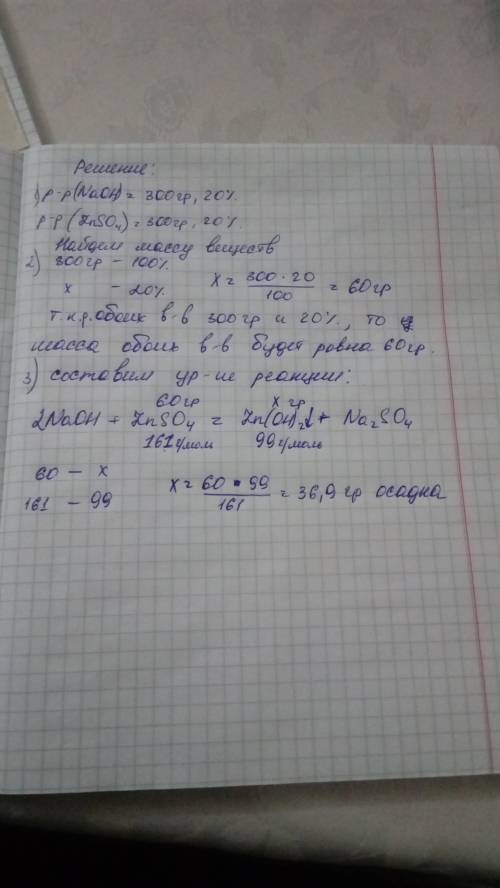 Решение:
1) р-р(NaOH) = 300гр, 20%.
р-р(ZnSO₄) = 300гр, 20%.
Найдем массу веществ
2) 300гр - 100%.
x - 20% x = 300 · 20 / 100 = 60гр
т.к.р.обоих в-в 300гр и 20%, то
масса обоих в-в будет равна 60гр.
3) составим ур-ие реакции:
60гр x гр
2NaOH + ZnSO₄ = Zn(OH)₂↓ + Na₂SO₄
161г/моль 99г/моль
60 - x
161 - 99 x = 60 · 99 / 161 = 36,9 гр осадка